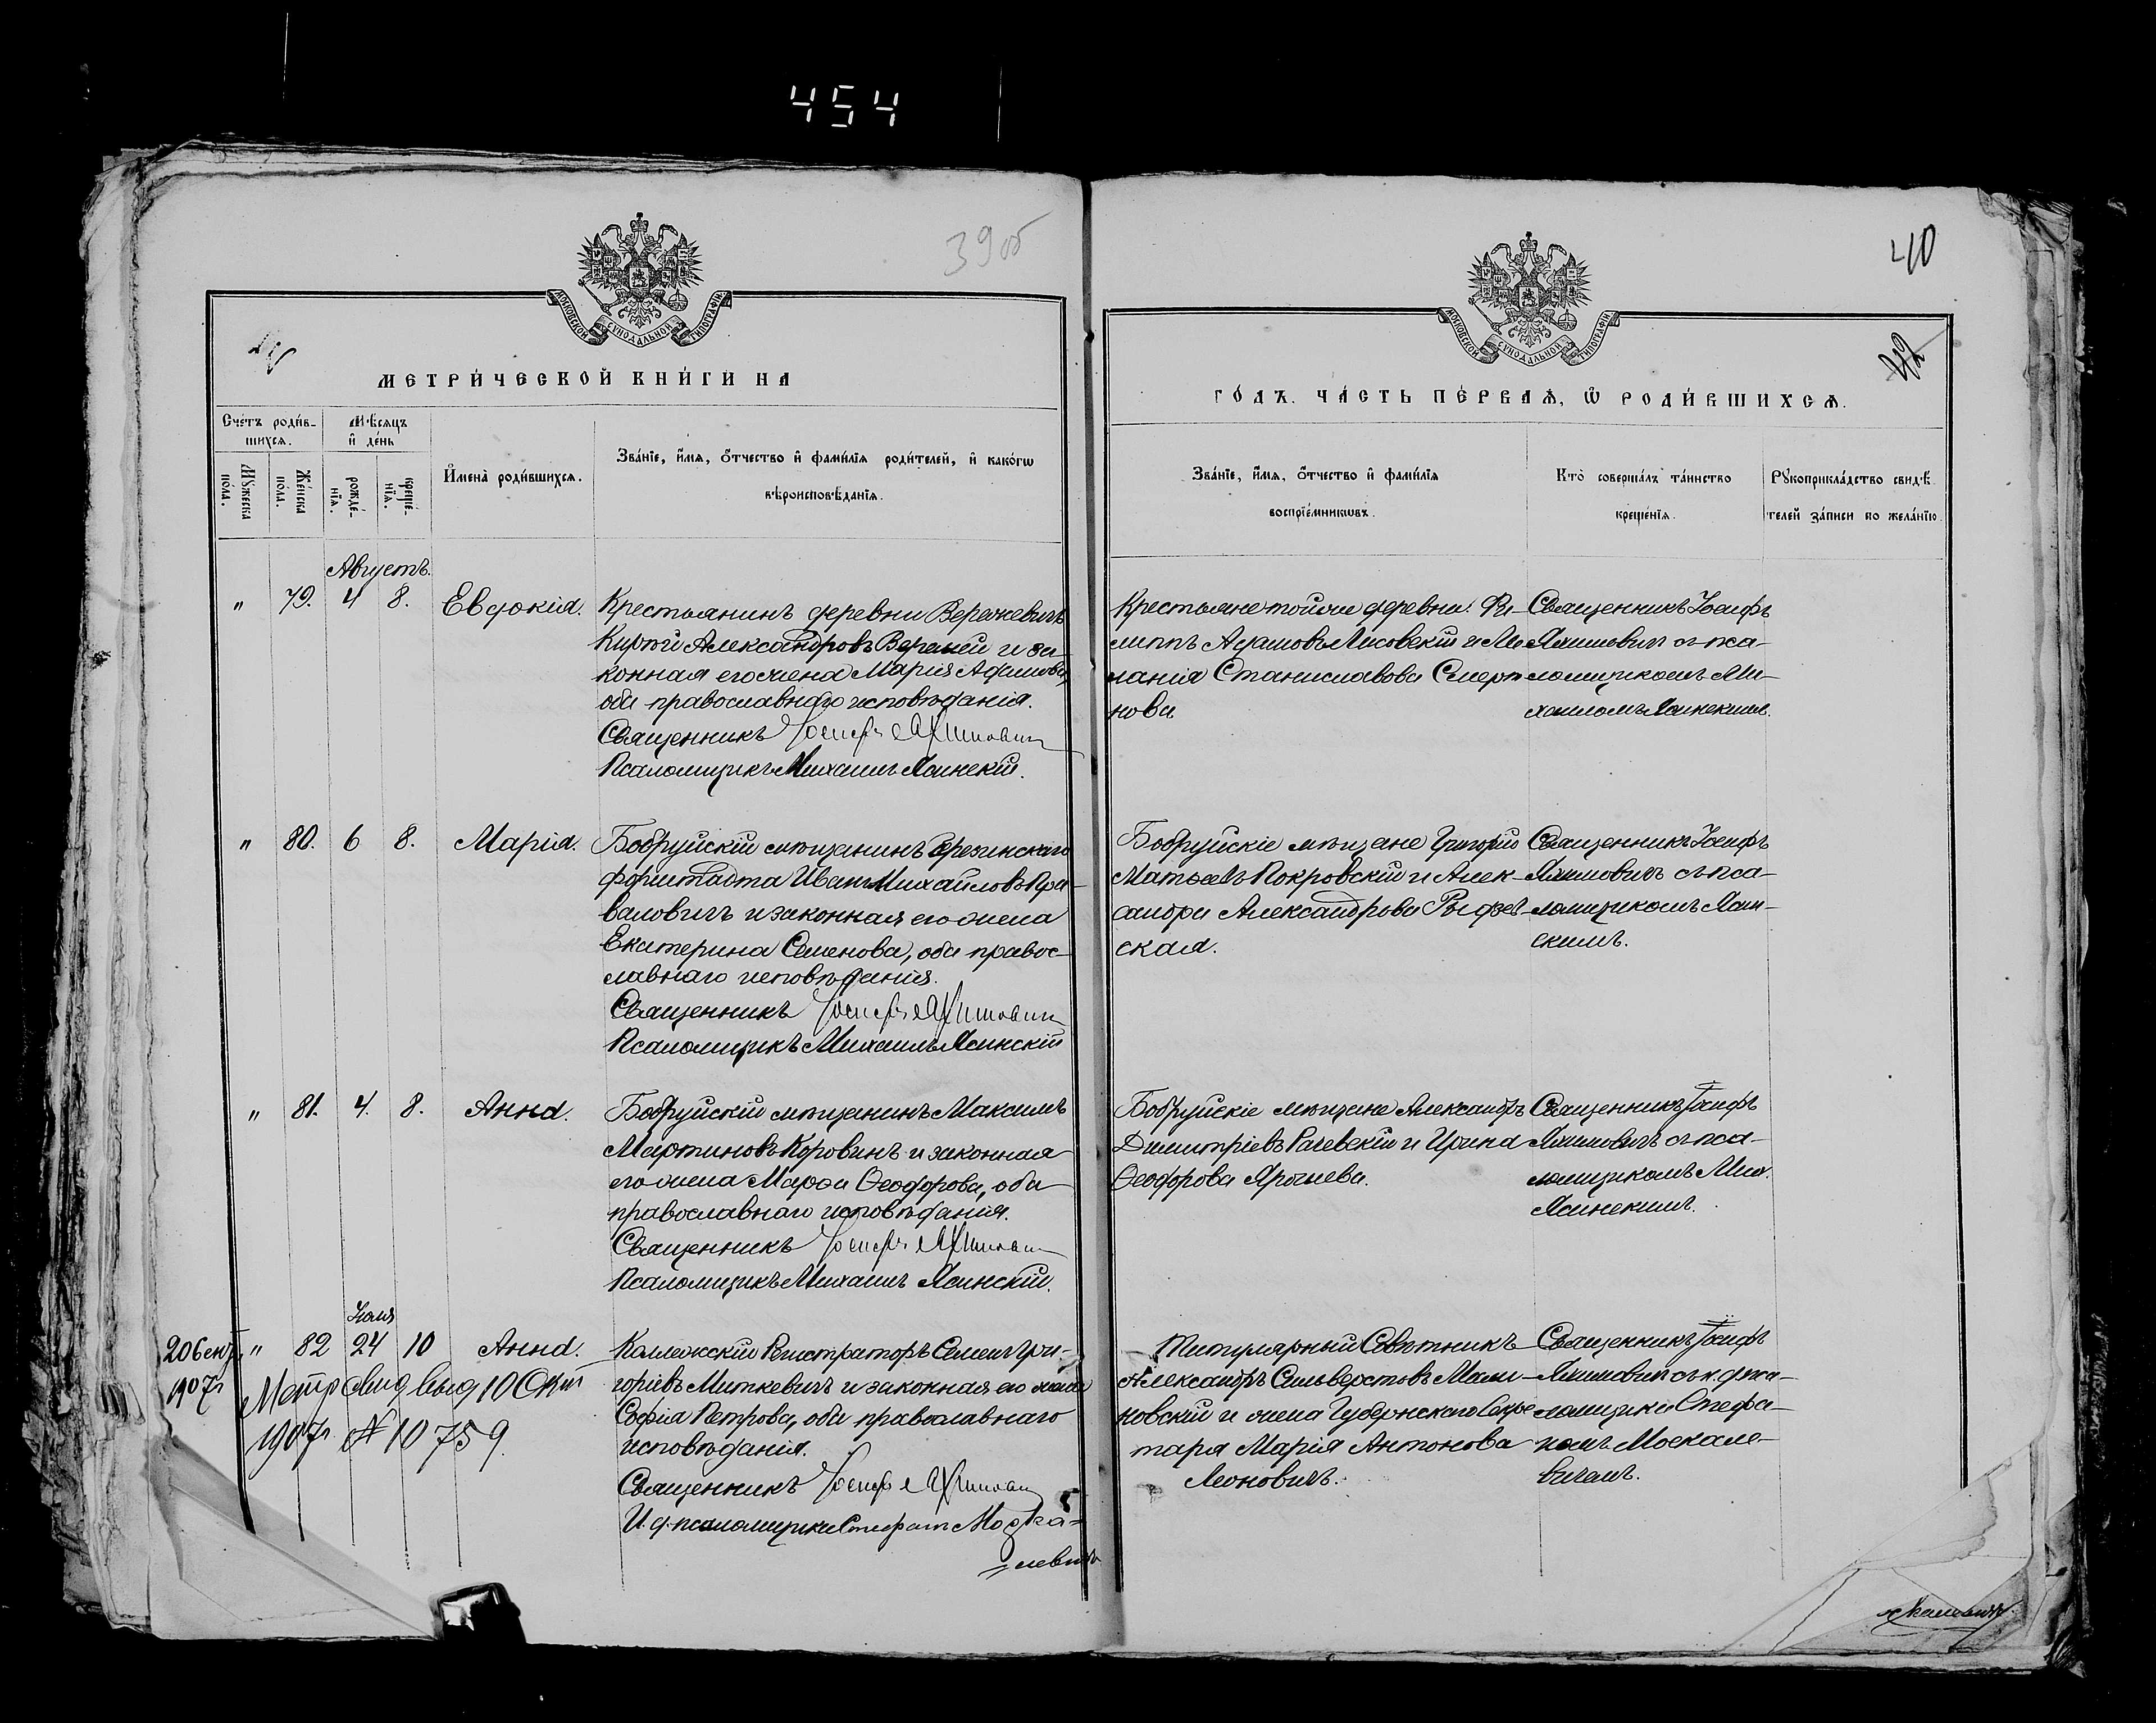 454
39об
40
42
МОСКОВСКОЙ СѴНОДАЛЬНОЙ ТИПОГРАФІИ
МОСКОВСКОЙ СѴНОДАЛЬНОЙ ТИПОГРАФІИ
МЕТРИ́ЧЕСКОЙ КНИ́ГИ НА
ГО́ДЪ. ЧА́СТЬ ПЕ́РВАѦ, Ѡ҆ РОДИ́ВШИХСѦ.
Сче́тъ роди́в-
шихсѧ.
Мѣ́сѧцъ
и҆ де́нь
Мꙋ́жеска
по́ла.
Же́нска
по́ла.
рожде́-
нїѧ.
креще́-
нїѧ.
И҆мена̀ роди́вшихсѧ.
Зва́нїе, и҆́мѧ, ѻ҆́тчество и҆ фами́лїѧ роди́телей, и҆ како́гѡ
вѣроисповѣ́данїѧ.
Зва́нїе, и҆́мѧ, ѻ҆́тчество и҆ фами́лїѧ
воспрїе́мникѡвъ.
Кто̀ соверша́лъ та́инство
креще́нїѧ.
Рꙋкоприкла́дство свидѣ́-
телей за́писи по жела́нїю.
Августъ.
" 79. 4 8. Евдокія.
Крестьянинъ деревни Вережевичъ
Александровъ Вережей и за-
конная его жена Марія Адамова,
оба православнаго исповѣданія.
Священникъ Іосифъ
Псаломщикъ Михаилъ Ясинскій.
Крестьяне тойже деревни: Фи-
липпъ Адамовъ Лисовскій и Ме-
ланія Станиславова
нова
Священникъ Іосифъ
съ пса-
ломщикомъ Ми-
хаиломъ Ясинскимъ.
" 80. 6 8. Марія.
Бобруйскій мѣщанинъ Березинскаго
форштадта Иванъ Михайловъ
валовичъ и законная его жена
Екатерина Семенова, оба правос-
лавнаго исповѣданія.
Священникъ Іосифъ
Псаломщикъ Михаилъ Ясинскій
Бобруйскіе мѣщане Григорій
Матвеевъ Покровскій и Алек-
сандра Александрова
ская.
Священникъ Іосифъ
съ пса-
ломщикомъ Ясин-
скимъ.
" 81. 4. 8. Анна.
Бобруйскій мѣщанинъ Максимъ
Мартиновъ Коровинъ и законная
его жена Марѳа Ѳеодорова, оба
православнаго исповѣданія.
Священникъ Іосифъ
Псаломщикъ Михаилъ Ясинскій.
Бобруйскіе мѣщане Александръ
Димитріевъ и Ирина
Ѳеодорова
Священникъ Іосифъ
съ пса-
ломщикомъ Мих.
Ясинскимъ.
Іюля
" 82 24 10 Анна.
1907г
Метр Свид выд 10 Окт
1907г № 10759.
Коллежскій Регистраторъ Семенъ Гри-
горіевъ Миткевичъ и законная его жена
Софія Петрова, оба православнаго
исповѣданія.
Священникъ Іосифъ
И. д. псаломщика Стефанъ Моска-
левичъ
Титулярный Совѣтникъ
Александръ Сильверстовъ Мали-
новскій и жена Губернскаго Секре-
таря Марія Антонова
Леоновичъ.
Священникъ Іосифъ
съ и. д. пса-
ломщика Стефа-
номъ Москале-
вичемъ.